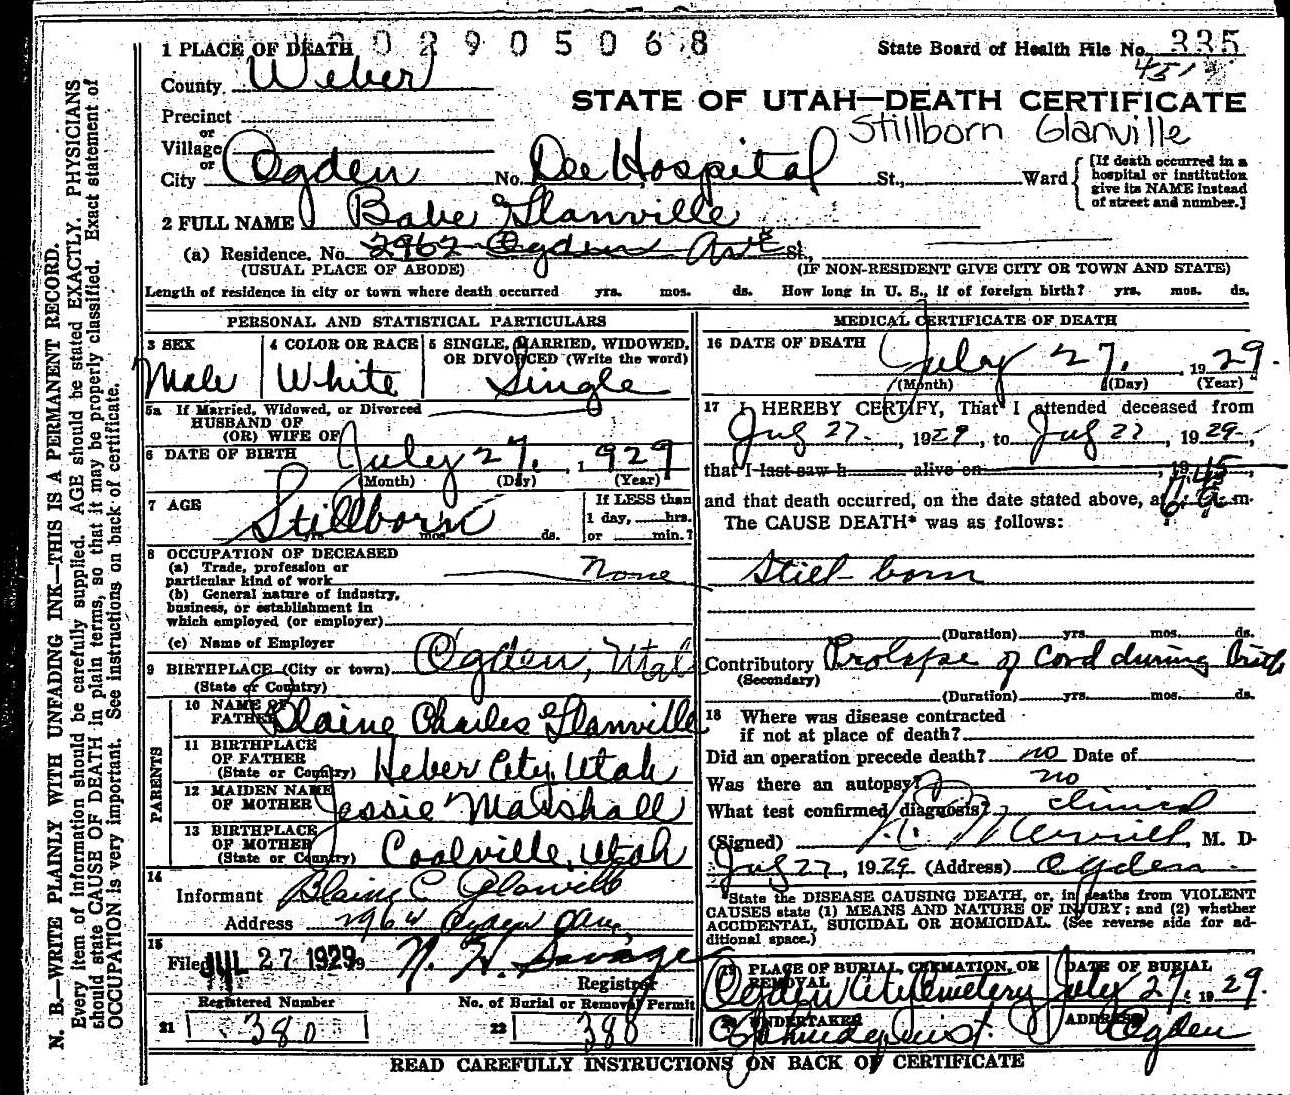 1 PLACE OF DEATH 0 2 9 0 5 0 6 8 State Board of Health File No. 335
County Weber 451
STATE OF UTAH—DEATH CERTIFICATE
Precinct
or
Village
or
Stillborn Glanville
City Ogden No. Dee Hospital St., Ward
[If death occurred in a hospital or institution give its NAME instead of street and number.]
2 FULL NAME Babe Glanville
(a) Residence. No. 2962 Ogden Ave St.,
(USUAL PLACE OF ABODE) (IF NON-RESIDENT GIVE CITY OR TOWN AND STATE)
Length of residence in city or town where death occurred yrs. mos. ds. How long in U. S., if of foreign birth? yrs. mos. ds.
PERSONAL AND STATISTICAL PARTICULARS
3 SEX 4 COLOR OR RACE 5 SINGLE, MARRIED, WIDOWED, OR DIVORCED (Write the word)
Male White Single
5a If Married, Widowed, or Divorced
HUSBAND OF
(OR) WIFE OF
6 DATE OF BIRTH July 27, 1929
(Month) (Day) (Year)
7 AGE Stillborn
yrs. mos. ds.
If LESS than
1 day, hrs.
or min.?
8 OCCUPATION OF DECEASED
(a) Trade, profession or
particular kind of work None
(b) General nature of industry,
business, or establishment in
which employed (or employer)
(c) Name of Employer
9 BIRTHPLACE (City or town) Ogden, Utah
(State or Country)
PARENTS
10 NAME OF FATHER Blaine Charles Glanville
11 BIRTHPLACE OF FATHER Heber City, Utah
(State or Country)
12 MAIDEN NAME OF MOTHER Jessie Marshall
13 BIRTHPLACE OF MOTHER Coalville, Utah
(State or Country)
14
Informant Blaine C Glanville
Address 2964 Ogden Ave,
15
Filed JUL 27 1929 N. H. Savage
Registrar
Registered Number No. of Burial or Removal Permit
21 380 22 380
MEDICAL CERTIFICATE OF DEATH
16 DATE OF DEATH July 27, 1929.
(Month) (Day) (Year)
17 I HEREBY CERTIFY, That I attended deceased from
July 27, 1929, to July 27, 1929,
that I last saw h alive on , 19 ,
and that death occurred, on the date stated above, at 6:45 a m.
The CAUSE DEATH* was as follows:
Still-born
(Duration) yrs. mos. ds.
Contributory Prolapse of Cord during Birth
(Secondary)
(Duration) yrs. mos. ds.
18 Where was disease contracted
if not at place of death?
Did an operation precede death? no Date of
Was there an autopsy? no
What test confirmed diagnosis? clinical
(Signed) Merrill, M. D.
July 27, 1929 (Address) Ogden
*State the DISEASE CAUSING DEATH, or, in deaths from VIOLENT
CAUSES state (1) MEANS AND NATURE OF INJURY; and (2) whether
ACCIDENTAL, SUICIDAL OR HOMICIDAL. (See reverse side for ad-
ditional space.)
19 PLACE OF BURIAL, CREMATION, OR REMOVAL DATE OF BURIAL
Ogden City Cemetery July 27, 1929.
20 UNDERTAKER ADDRESS
Ogden
READ CAREFULLY INSTRUCTIONS ON BACK OF CERTIFICATE
N. B.—WRITE PLAINLY WITH UNFADING INK—THIS IS A PERMANENT RECORD.
Every item of information should be carefully supplied. AGE should be stated EXACTLY. PHYSICIANS
should state CAUSE OF DEATH in plain terms, so that it may be properly classified. Exact statement of
OCCUPATION is very important. See instructions on back of certificate.